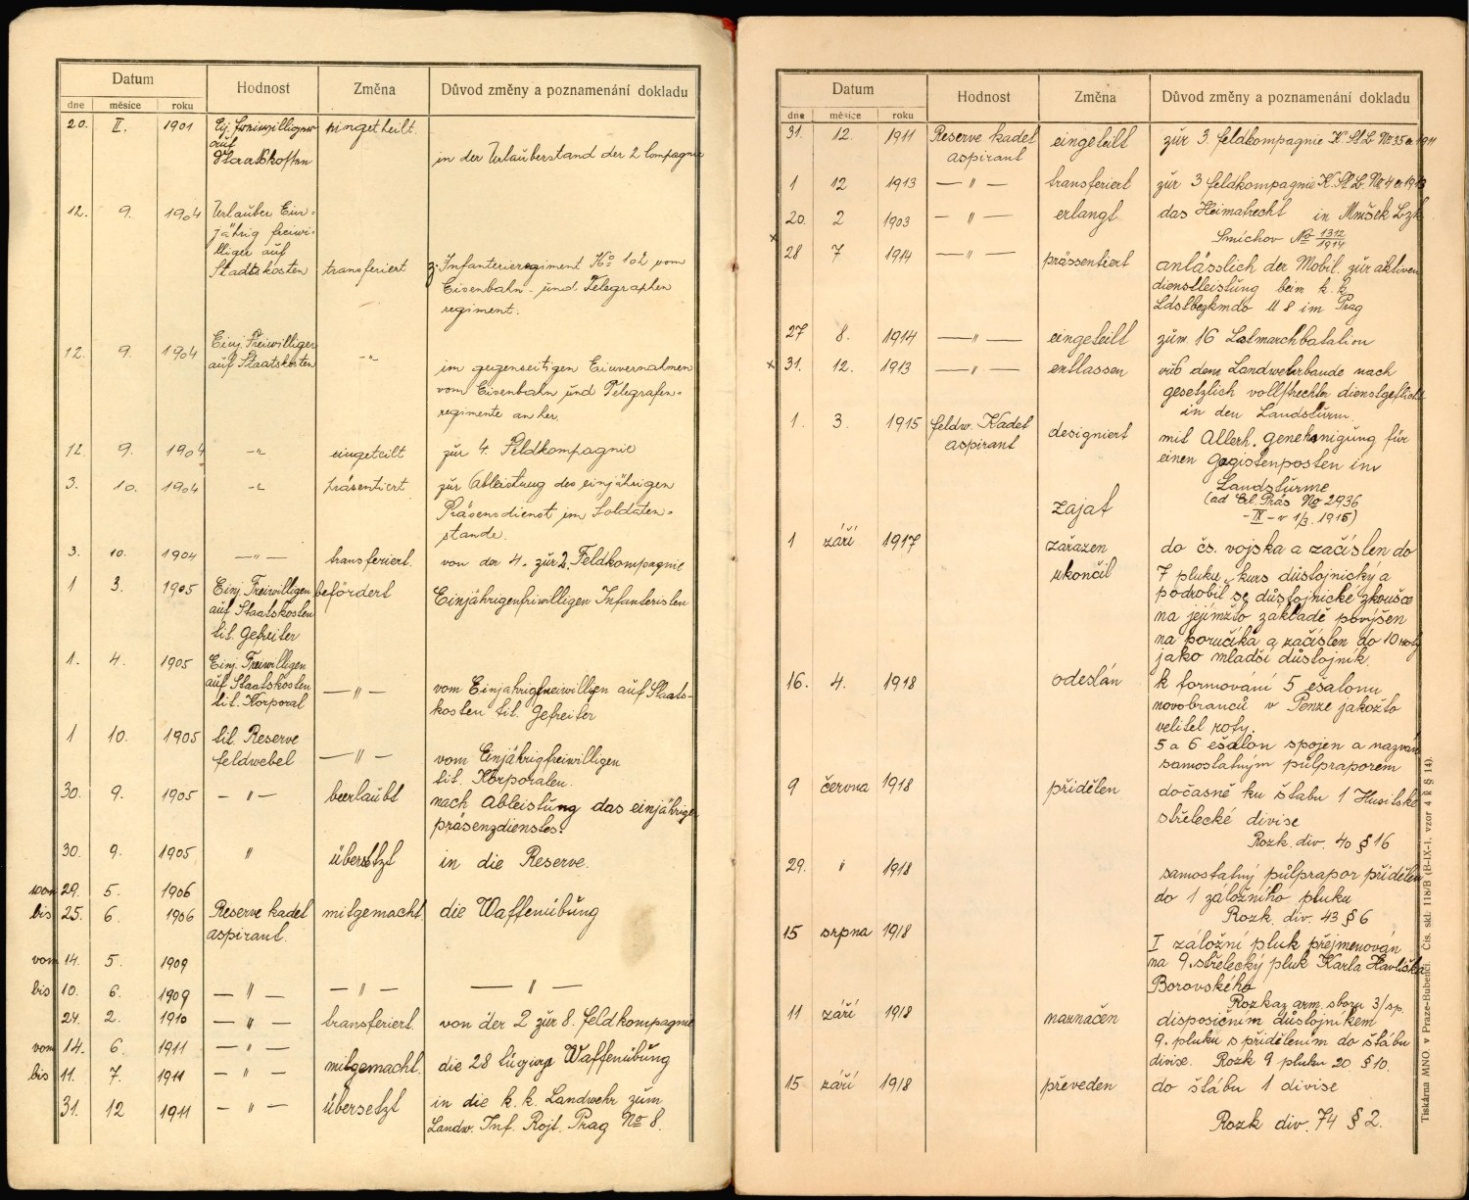 Datum
Hodnost
Změna
Důvod změny a poznamenání dokladu
dne
měsíce
roku
20. II. 1901 Ej. freiwilliger eingeteilt.
auf
Staatskosten in der Urlauberstand der 2 Compagnie
12. 9. 1904 Urlauber Ein-
jährig freiwi-
lliger auf
Stadtskosten transferiert z. Infanterieregiment No 102 vom
Eisenbahn- und Telegraphen
regiment.
12. 9. 1904 Einj. Freiwilliger
auf Staatskosten -"- im gegenseitigen Einvernahmen
vom Eisenbahn und Telegrafen-
regimente an her
12. 9. 1904 -"- eingeteilt zur 4. Feldkompagnie
3. 10. 1904 -"- präsentiert zur Ableistung des einjährigen
Präsensdienst im Soldaten-
stande.
3. 10. 1904 — " — transferiert. von der 4. zur 2. Feldkompagnie
1 3. 1905 Einj. Freiwilligen befördert Einjährigenfriwilligen Infanteristen
auf Staatskosten
tit. Gefreiter
1. 4. 1905 Einj. Freiwilligen
auf Staatskosten — " — vom Einjahrigfreiwilligen auf Staats-
tit. Korporal kosten tit. Gefreiter
1 10. 1905 tit. Reserve
feldwebel — " — vom Einjährigfreiwilligen
tit. Korporalen.
30. 9. 1905 — " — beerlaubt nach Ableistung das einjährige
präsenzdienstes.
30. 9. 1905 " übersetzt in die Reserve.
von 29. 5. 1906
bis 25. 6. 1906 Reserve kadet mitgemacht. die Waffenübung
aspirant.
vom 14. 5. 1909
bis 10. 6. 1909 — " — — " — — " —
24. 2. 1910 — " — transferiert. von der 2 zur 8. feldkompagnie
vom 14. 6. 1911 — " —
mitgemacht. die 28 Waffenübung
bis 11. 7. 1911 — " —
31. 12 1911 — " — übersetzt in die k. k. Landwehr zum
Landw. Inf. Rejt. Prag No 8.
Datum
Hodnost
Změna
Důvod změny a poznamenání dokladu
dne
měsíce
roku
31. 12. 1911 Reserve kadet eingeteilt zur 3. feldkompagnie K. St. B. No 35 e 1911
aspirant
1 12 1913 — " — transferiert zur 3 feldkompagnie K. St. B. No 4 e 1913
20. 2 1903 — " — erlangt das Heimatrecht in Mníšek Bzk
Smíchov No 1312/1914
x
28 7 1914 — " — prässentiert anlässlich der Mobil. zur aktiven
dienstleistung beim k. k.
Ldstbezkmdo No 8 im Prag
27 8. 1914 — " — eingeteilt zum 16 Lstmarchbatalion
x 31. 12. 1913 — " — entlassen aus dem Landwehrbande nach
gesetzlich vollstreckter dienstpflicht
in den Landsturm.
1. 3. 1915 feldw. Kadet designiert mit Allerh. genehmigung für
aspirant einen Gagistenposten im
Landsturme
(ad Erl. Präs No 2936
- IX - v 1/3. 1915)
zajat
1 září 1917 zařazen do čs. vojska a začíslen do
ukončil 7 pluku, kurs důstojnický a
podrobil se důstojnické zkoušce
na jejímžto základě povýšen
na poručíka a začíslen do 10 roty
jako mladší důstojník.
16. 4. 1918 odeslán k formování 5 ešalonu
novobranců v Penze jakožto
velitel roty.
5 a 6 ešalon spojen a nazván
samostatným půlpraporem
9 června 1918 přidělen dočasně ku štabu 1 Husitské
střelecké divise
Rozk. div. 40 § 16
29. " 1918 samostatný půlprapor přidělen
do 1 záložního pluku
Rozk. div. 43 § 6
15 srpna 1918 I záložní pluk přejmenován
na 9. střelecký pluk Karla Havlíčka
Borovského
Rozkaz arm. sboru 3/sp.
11 září 1918 naznačen disposičním důstojníkem
9. pluku s přidělením do štábu
divise. Rozk 9 pluku 20 § 10.
15 září 1918 převeden do štábu 1 divise
Rozk div. 74 § 2.
Tiskárna MNO. v Praze-Bubenči. Čís. skl. 118/B (B-IX-1. vzor 4 k § 14).